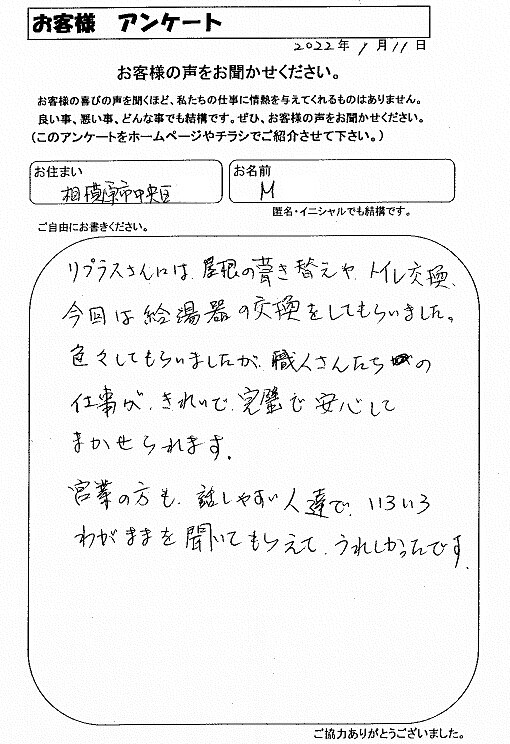 お客様 アンケート
2022年 1月11日
お客様の声をお聞かせください。
お客様の喜びの声を聞くほど、私たちの仕事に情熱を与えてくれるものはありません。
良い事、悪い事、どんな事でも結構です。ぜひ、お客様の声をお聞かせください。
(このアンケートをホームページやチラシでご紹介させて下さい。)
お住まい
相模原市中央区
お名前
M
匿名・イニシャルでも結構です。
ご自由にお書きください。
リプラスさんには、屋根の葺き替えや、トイレ交換、
今回は給湯器の交換をしてもらいました。
色々してもらいましたが、職人さんたちの
仕事が、きれいで、完璧で安心して
まかせられます。
営業の方も、話しやすい人達で、いろいろ
わがままを聞いてもらえて、うれしかったです。
ご協力ありがとうございました。